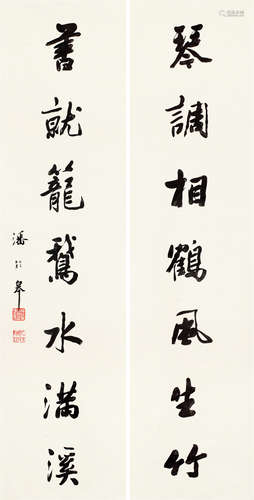 琴調相鶴風生竹
書就籠鵞水滿溪
潘齡皋